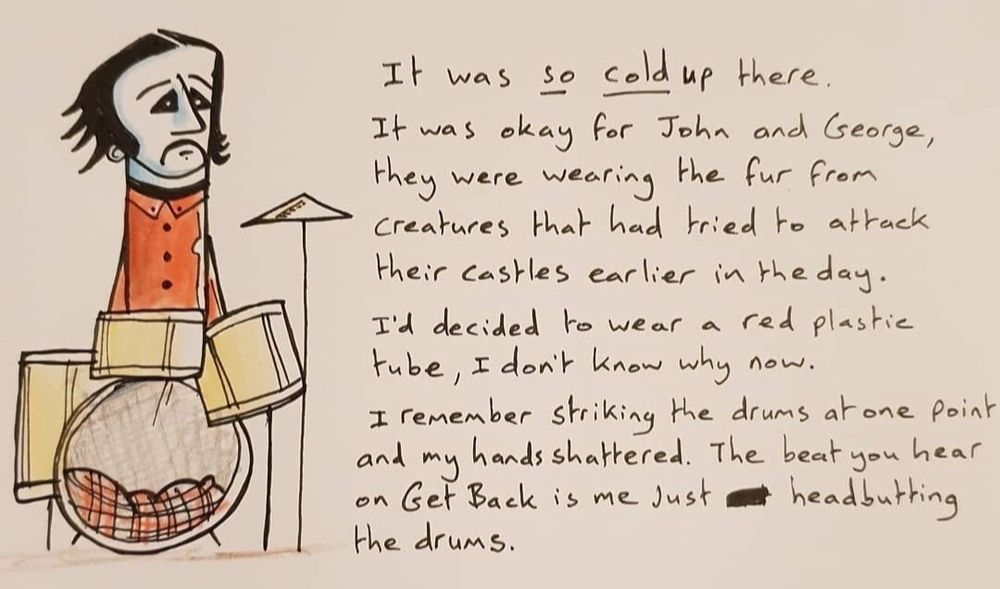 It was so cold up there.
It was okay for John and George,
they were wearing the fur from
creatures that had tried to attack
their castles earlier in the day.
I'd decided to wear a red plastic
tube, I don't know why now.
I remember striking the drums at one point
and my hands shattered. The beat you hear
on Get Back is me just headbutting
the drums.